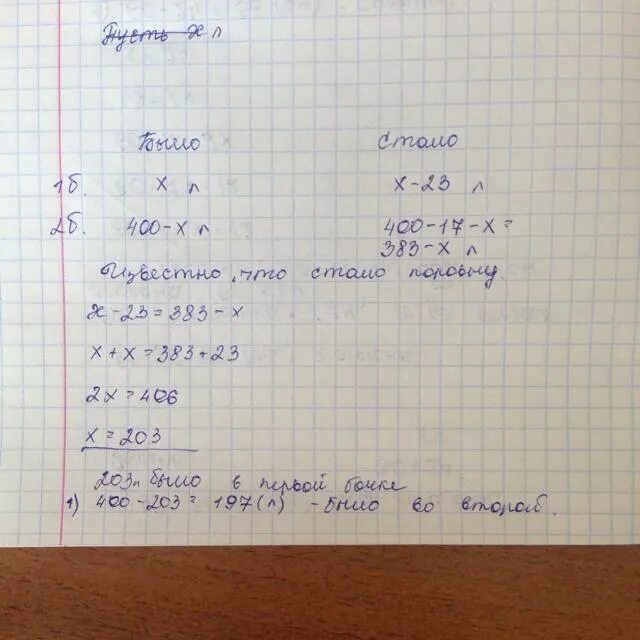 Пусть х л
Было Стало
1б. х л х-23 л
2б. 400-х л 400-17-х=
383-х л
Известно, что стало поровну
х-23=383-х
х+х=383+23
2х=406
х=203
203л было в первой бочке
1) 400-203=197(л) - было во второй.